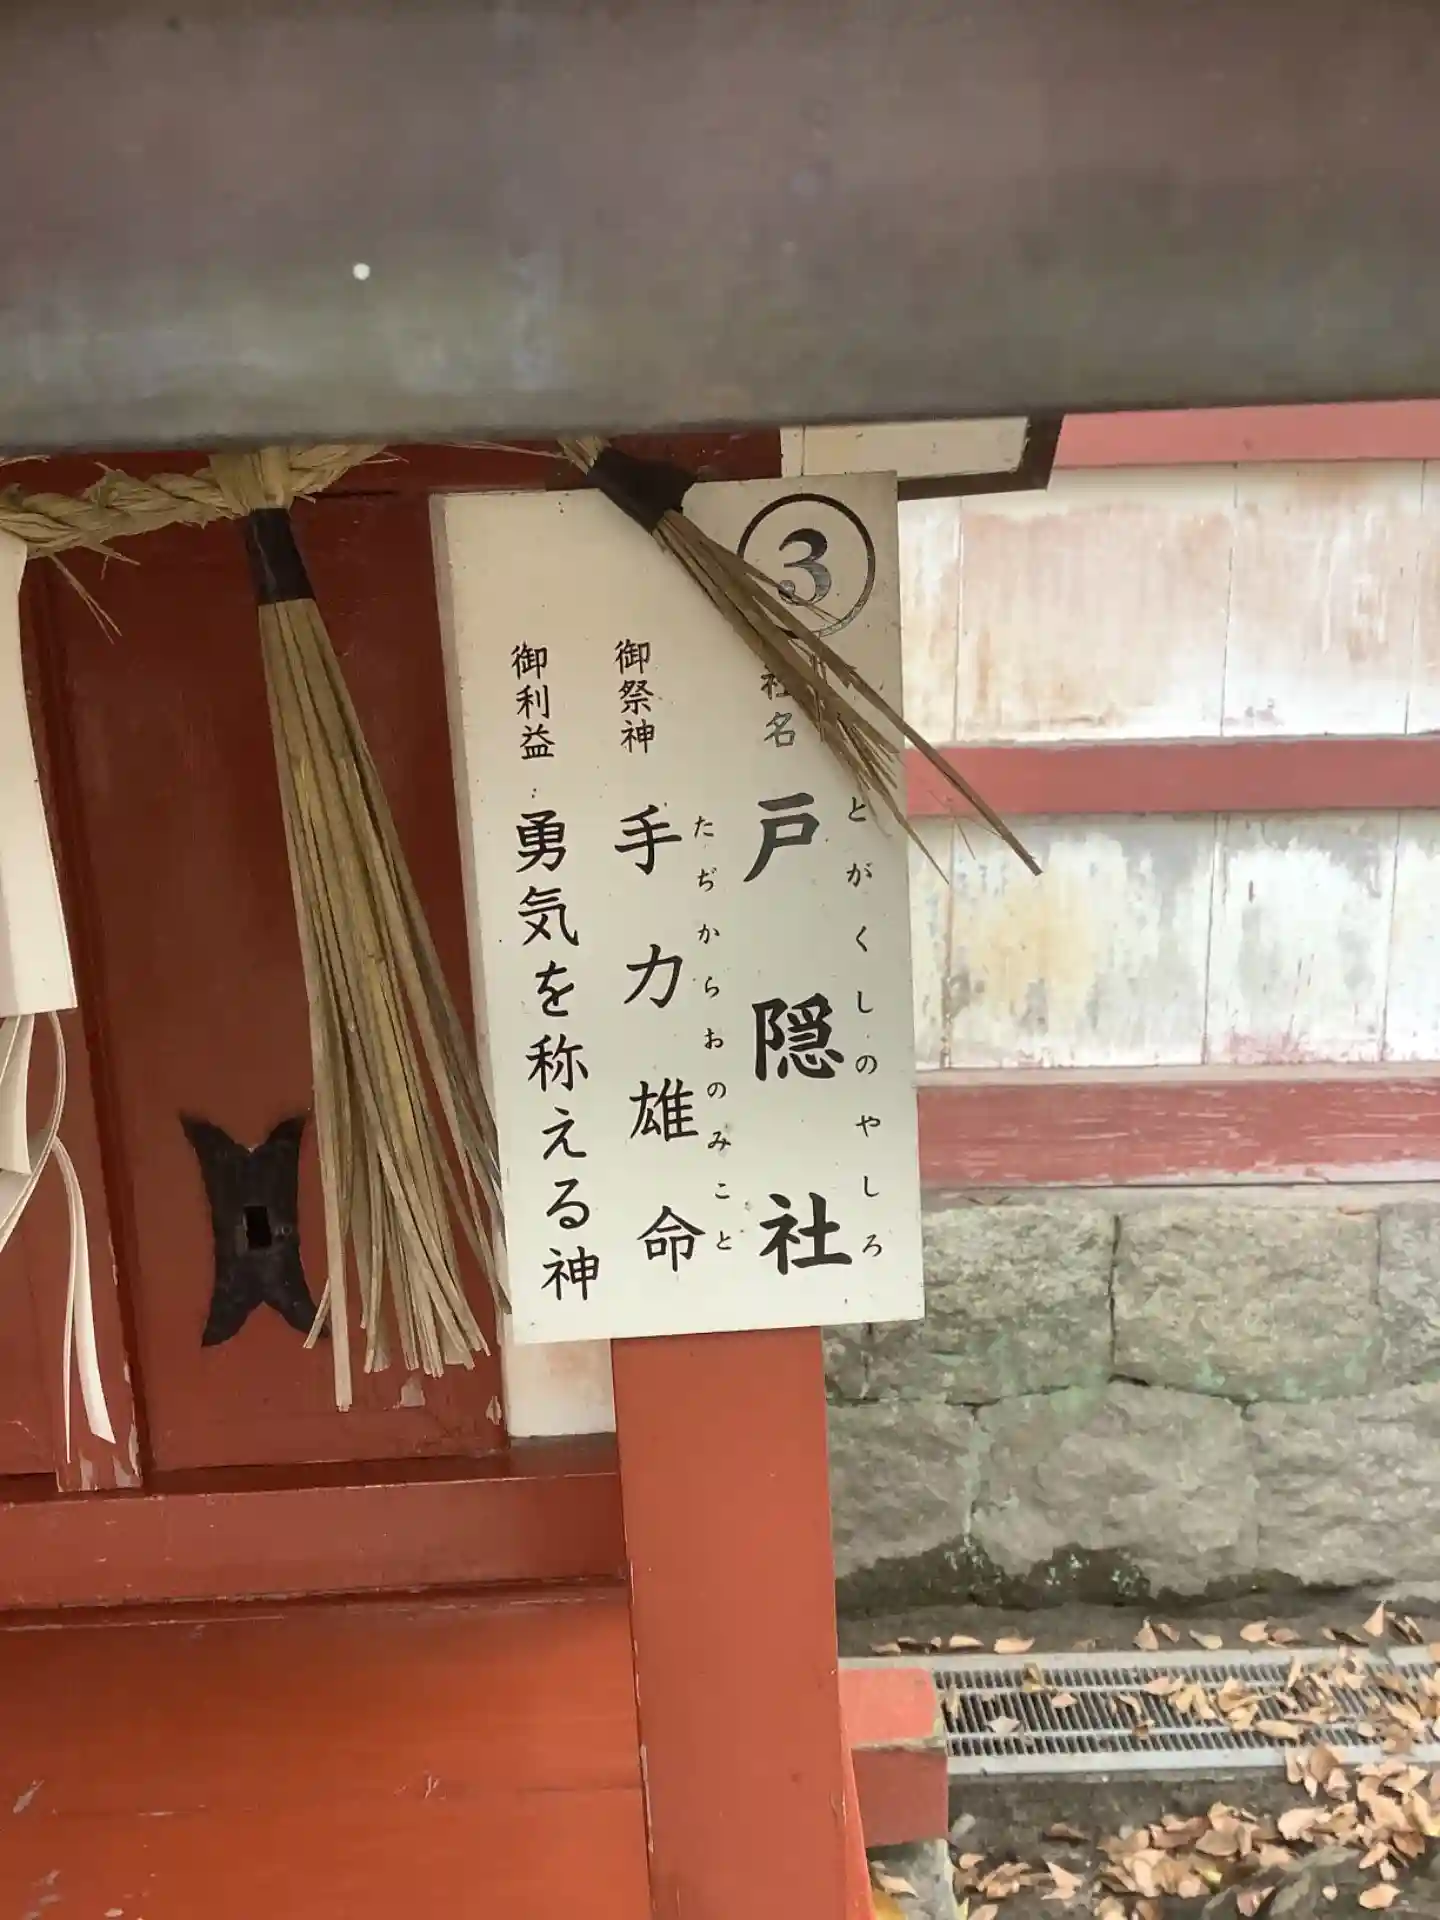 ③
社名 戸隠社
とがくしのやしろ
御祭神 手力雄命
たぢからおのみこと
御利益 勇気を称える神